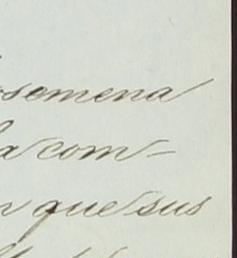 semena
a com-
n que sus